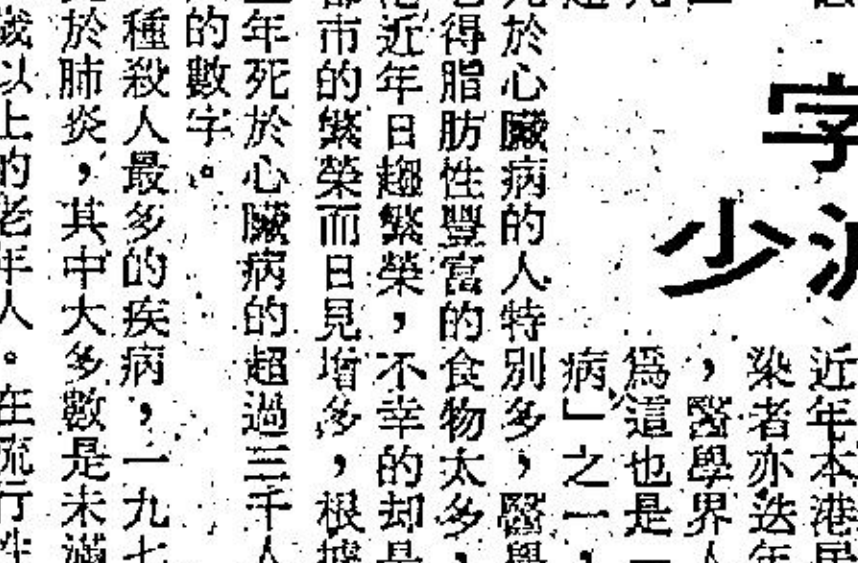 字減
少
近年本港居
染者亦迭年
，醫學界人
爲這也是一
病」之一，
死於心臟病的人特別多，醫學
得脂肪性豐富的食物太多，
近年日趨繁榮，不幸的却是
都市的繁榮而日見增多，根據
年死於心臟病的超過三千人
的數字。
種殺人最多的疾病，一九七
於肺炎，其中大多數是未滿
歲以上的老年人。在流行性